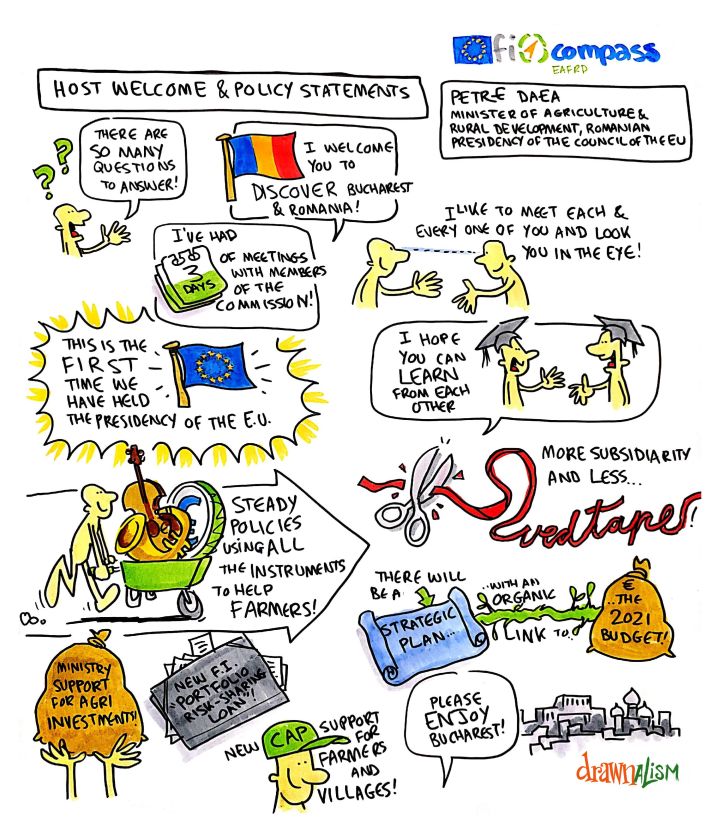 fi compass
EAFRD
HOST WELCOME & POLICY STATEMENTS
PETRE DAEA
MINISTER OF AGRICULTURE &
RURAL DEVELOPMENT, ROMANIAN
PRESIDENCY OF THE COUNCIL OF THE EU
THERE ARE
SO MANY
QUESTIONS
TO ANSWER!
I WELCOME
YOU TO
DISCOVER BUCHAREST
& ROMANIA!
I LIKE TO MEET EACH &
EVERY ONE OF YOU AND LOOK
YOU IN THE EYE!
I'VE HAD
3
DAYS
OF MEETINGS
WITH MEMBERS
OF THE
COMMISSION!
THIS IS THE
FIRST
TIME WE
HAVE HELD
THE PRESIDENCY OF THE E.U.
I HOPE
YOU CAN
LEARN
FROM EACH
OTHER
STEADY
POLICIES
USING ALL
THE INSTRUMENTS
TO HELP
FARMERS!
€
MORE SUBSIDIARITY
AND LESS...
red tape!
THERE WILL
BE A
STRATEGIC
PLAN...
..WITH AN
ORGANIC
LINK TO..
€
..THE
2021
BUDGET!
MINISTRY
SUPPORT
FOR AGRI
INVESTMENTS!
NEW F.I.
"PORTFOLIO
RISK-SHARING
LOAN"!
NEW CAP SUPPORT
FOR
FARMERS
AND
VILLAGES!
PLEASE
ENJOY
BUCHAREST!
drawnALISM